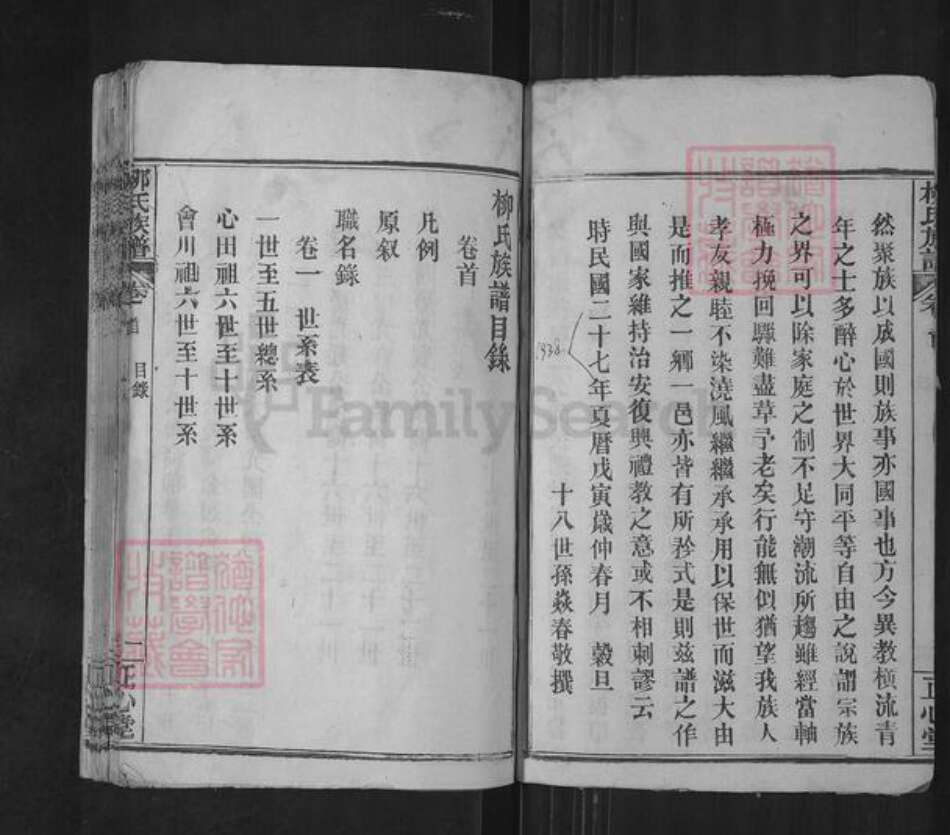 然聚族以成國則族事亦國事也方今異教橫流青
年之士多醉心於世界大同平等自由之說謂宗族
之界可以除家庭之制不足守潮流所趨雖經當軸
極力挽回驟難盡草予老矣行能無似猶望我族人
孝友親睦不染澆風繼繼承承用以保世而滋大由
是而推之一鄉一邑亦皆有所矜式是則茲譜之作
與國家維持治安復興禮教之意或不相刺謬云
時民國二十七年夏曆戊寅歲仲春月 穀旦
1938
十八世孫焱春敬撰
柳氏族譜
卷首
正心堂
柳氏族譜目錄
卷首
凡例
原叙
職名錄
卷一 世系表
一世至五世總系
心田祖六世至十世系
會川祖六世至十世系
柳氏族譜
卷首
目錄
一
正心堂
FamilySearch